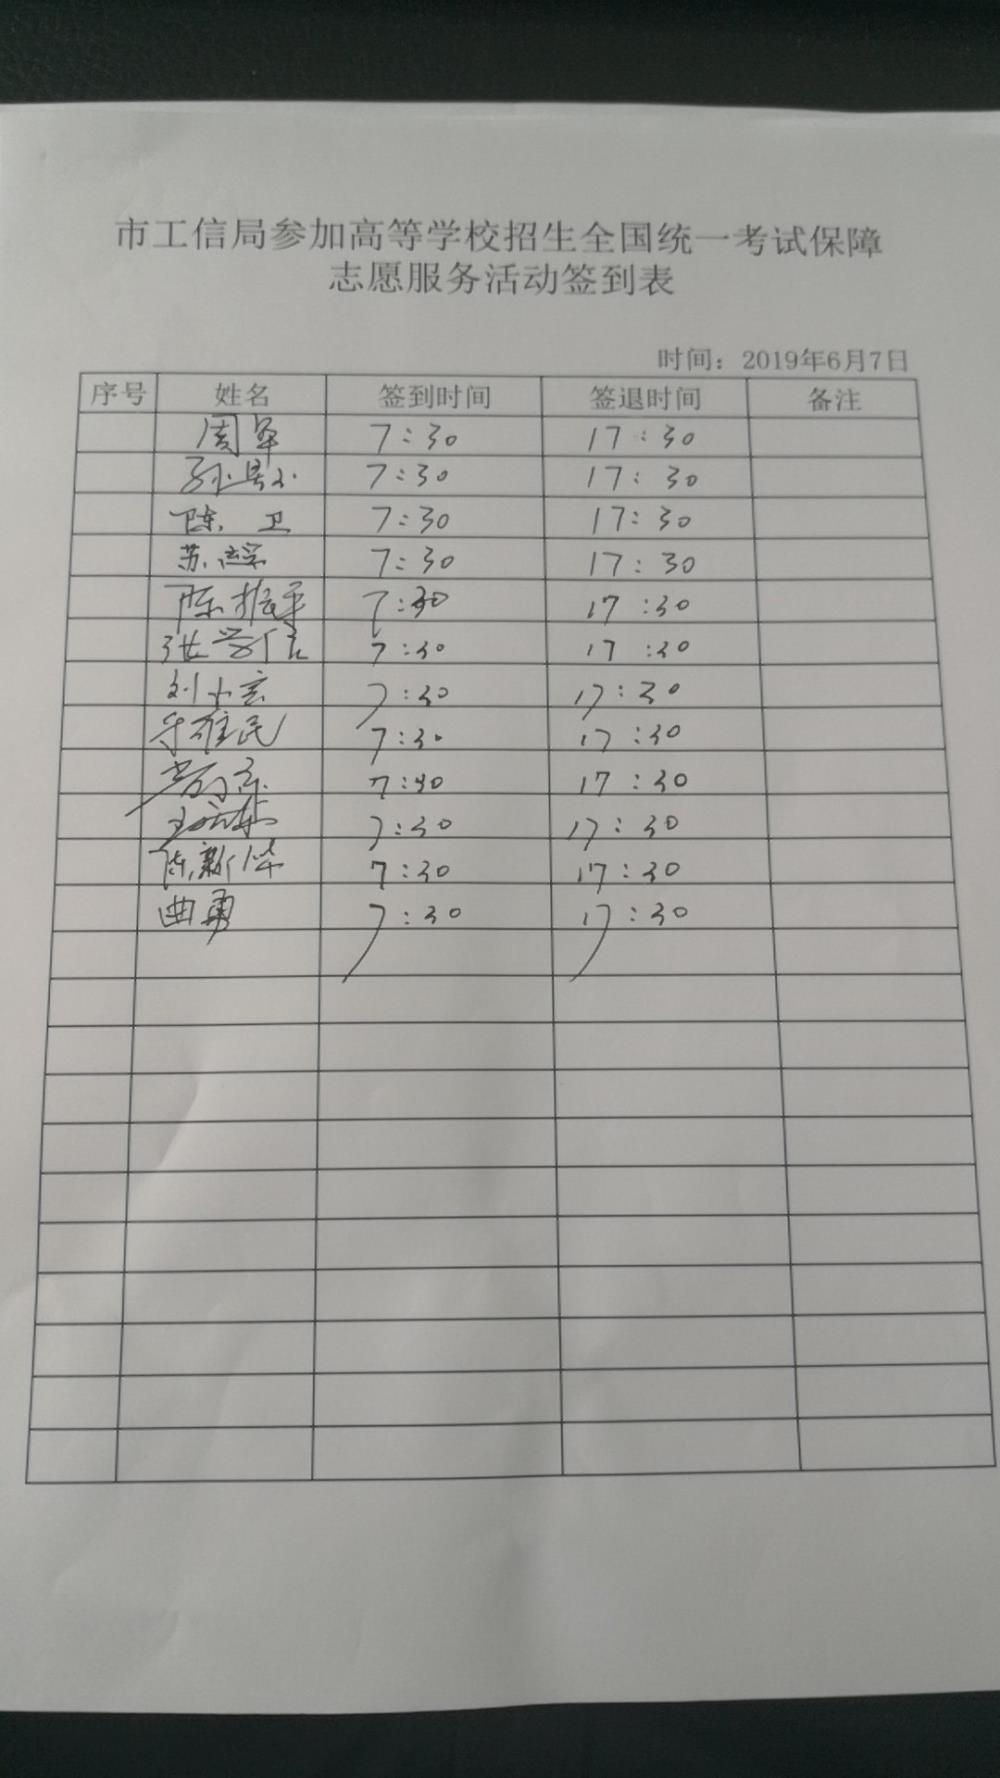 市工信局参加高等学校招生全国统一考试保障
志愿服务活动签到表
时间：2019年6月7日
序号 姓名 签到时间 签退时间 备注
周军 7:30 17:30
7:30 17:30
陈卫 7:30 17:30
苏 7:30 17:30
陈振平 7:30 17:30
张学仁 7:30 17:30
刘小宏 7:30 17:30
维民 7:30 17:30
7:30 17:30
王 7:30 17:30
陈新华 7:30 17:30
曲勇 7:30 17:30